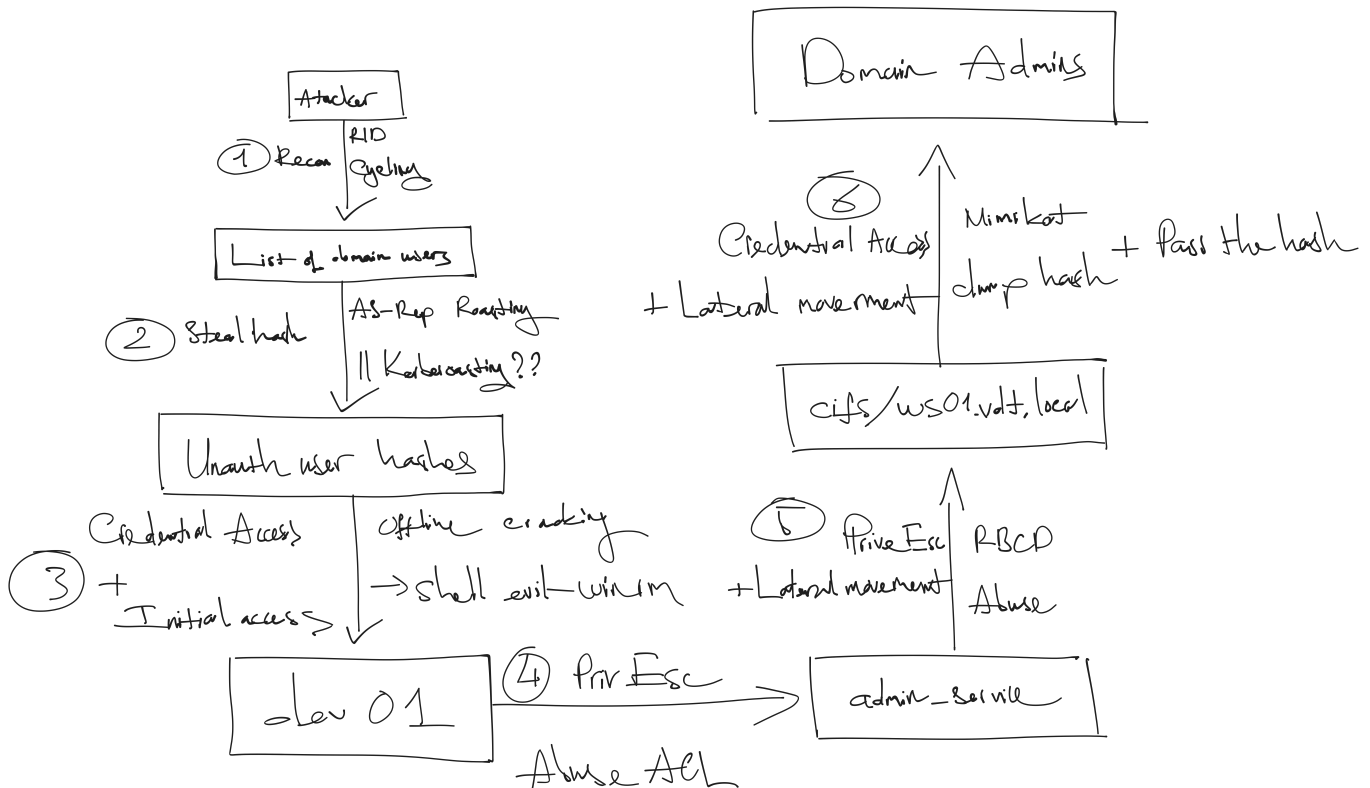 Atacker
1 Recon
RID
Cycling
List of domain users
2 Steal hash
AS-Rep Roasting
|| Kerberoasting??
Unauth user hashes
3 Credential Access
+
Initial access
Offline cracking
→ shell evil-winrm
dev 01
4 PrivEsc
Abuse ACL
admin_service
5 PriveEsc
+ Lateral movement
RBCD
Abuse
cifs/ws01.vdt.local
6
Credential Access
+ Lateral movement
Mimikat
dump hash
+ Pass the hash
Domain Admins